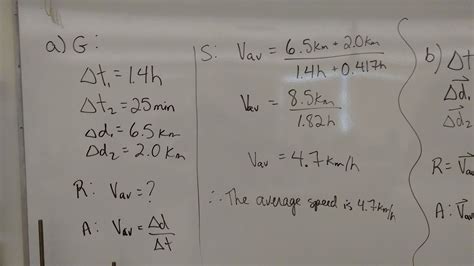 a) G:
Δt₁ = 1.4h
Δt₂ = 25min
Δd₁ = 6.5km
Δd₂ = 2.0km
R: Vav = ?
A: Vav = Δd/Δt
S: Vav = 6.5km + 2.0km / 1.4h + 0.417h
Vav = 8.5km / 1.82h
Vav = 4.7km/h
∴ The average speed is 4.7km/h
b) Δt
Δd⃗₁
Δd⃗₂
R: V⃗av
A: V⃗av